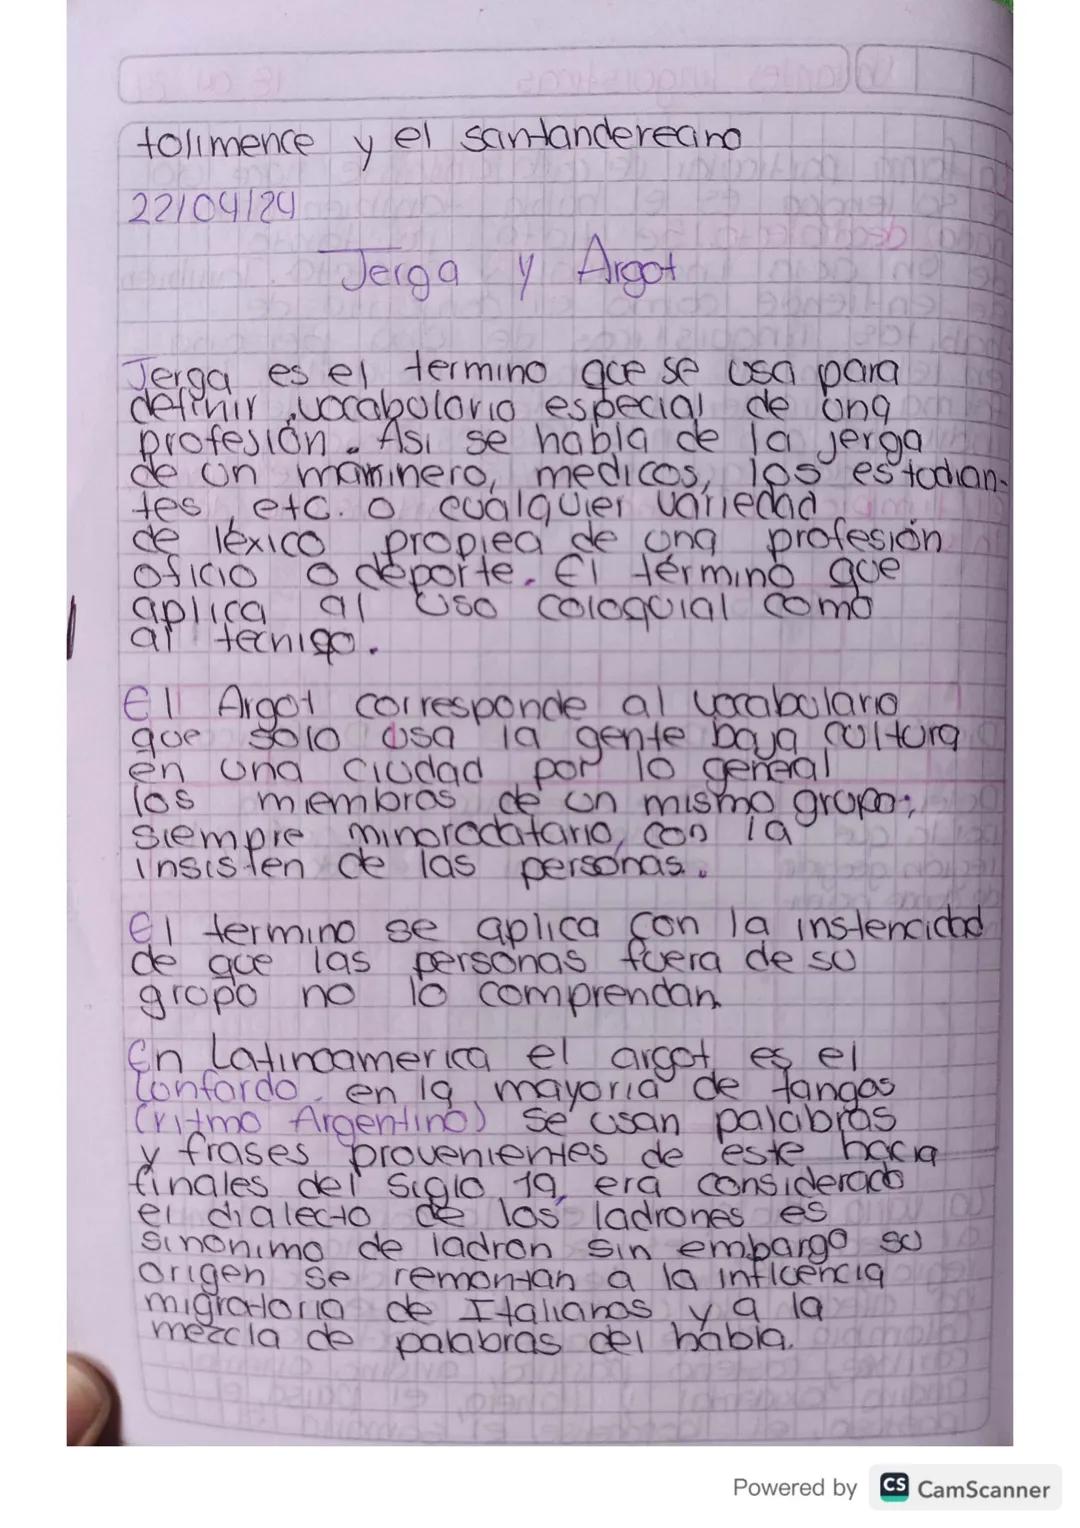 tolimence y el santandereano
22/04/24
Jerga y Argot
Jerga es el termino que se usa para
definir vocabulario especial de una
profesión. Asi se habla de la jerga
de un marinero, medicos, los estudian-
tes, etc. o cualquier variedad
de léxico propiea de una profesión
oficio o deporte. El término que
aplica al uso coloquial como
al tecnigo.
El Argot corresponde al vocabulario
que solo usa la gente baja cultura
en una ciudad por lo general
los miembros de un mismo grupo;
siempre minorodatario, con la
insisten de las personas.
El termino se aplica con la instencidad
de que las personas fuera de su
grupo no lo comprendan
En Latinoamerica el argot es el
Lonfardo. en la mayoria de tangos
(ritmo Argentino) se usan palabras
y frases provenientes de este hacia
finales del siglo 19, era considerado
el dialecto de los ladrones es
sinonimo de ladron sin embargo su
origen se remontan a la influencia
migratoria de Italianos y a la
mezcla de palabras del habla.
Powered by CS CamScanner